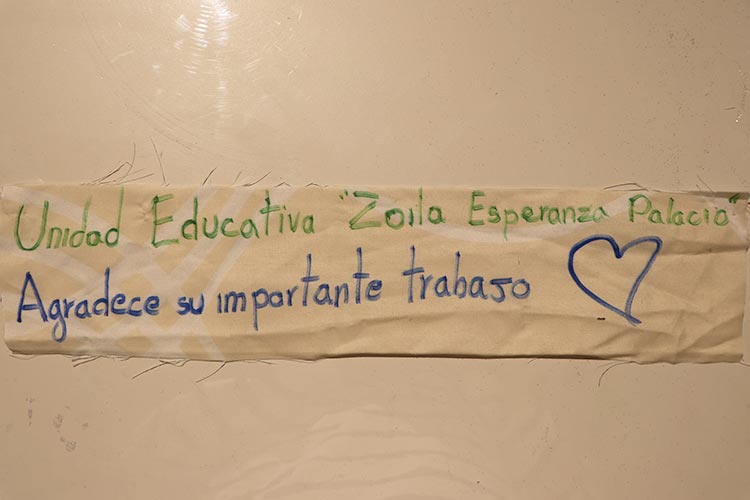 Unidad Educativa "Zoila Esperanza Palacio"
Agradece su importante trabajo